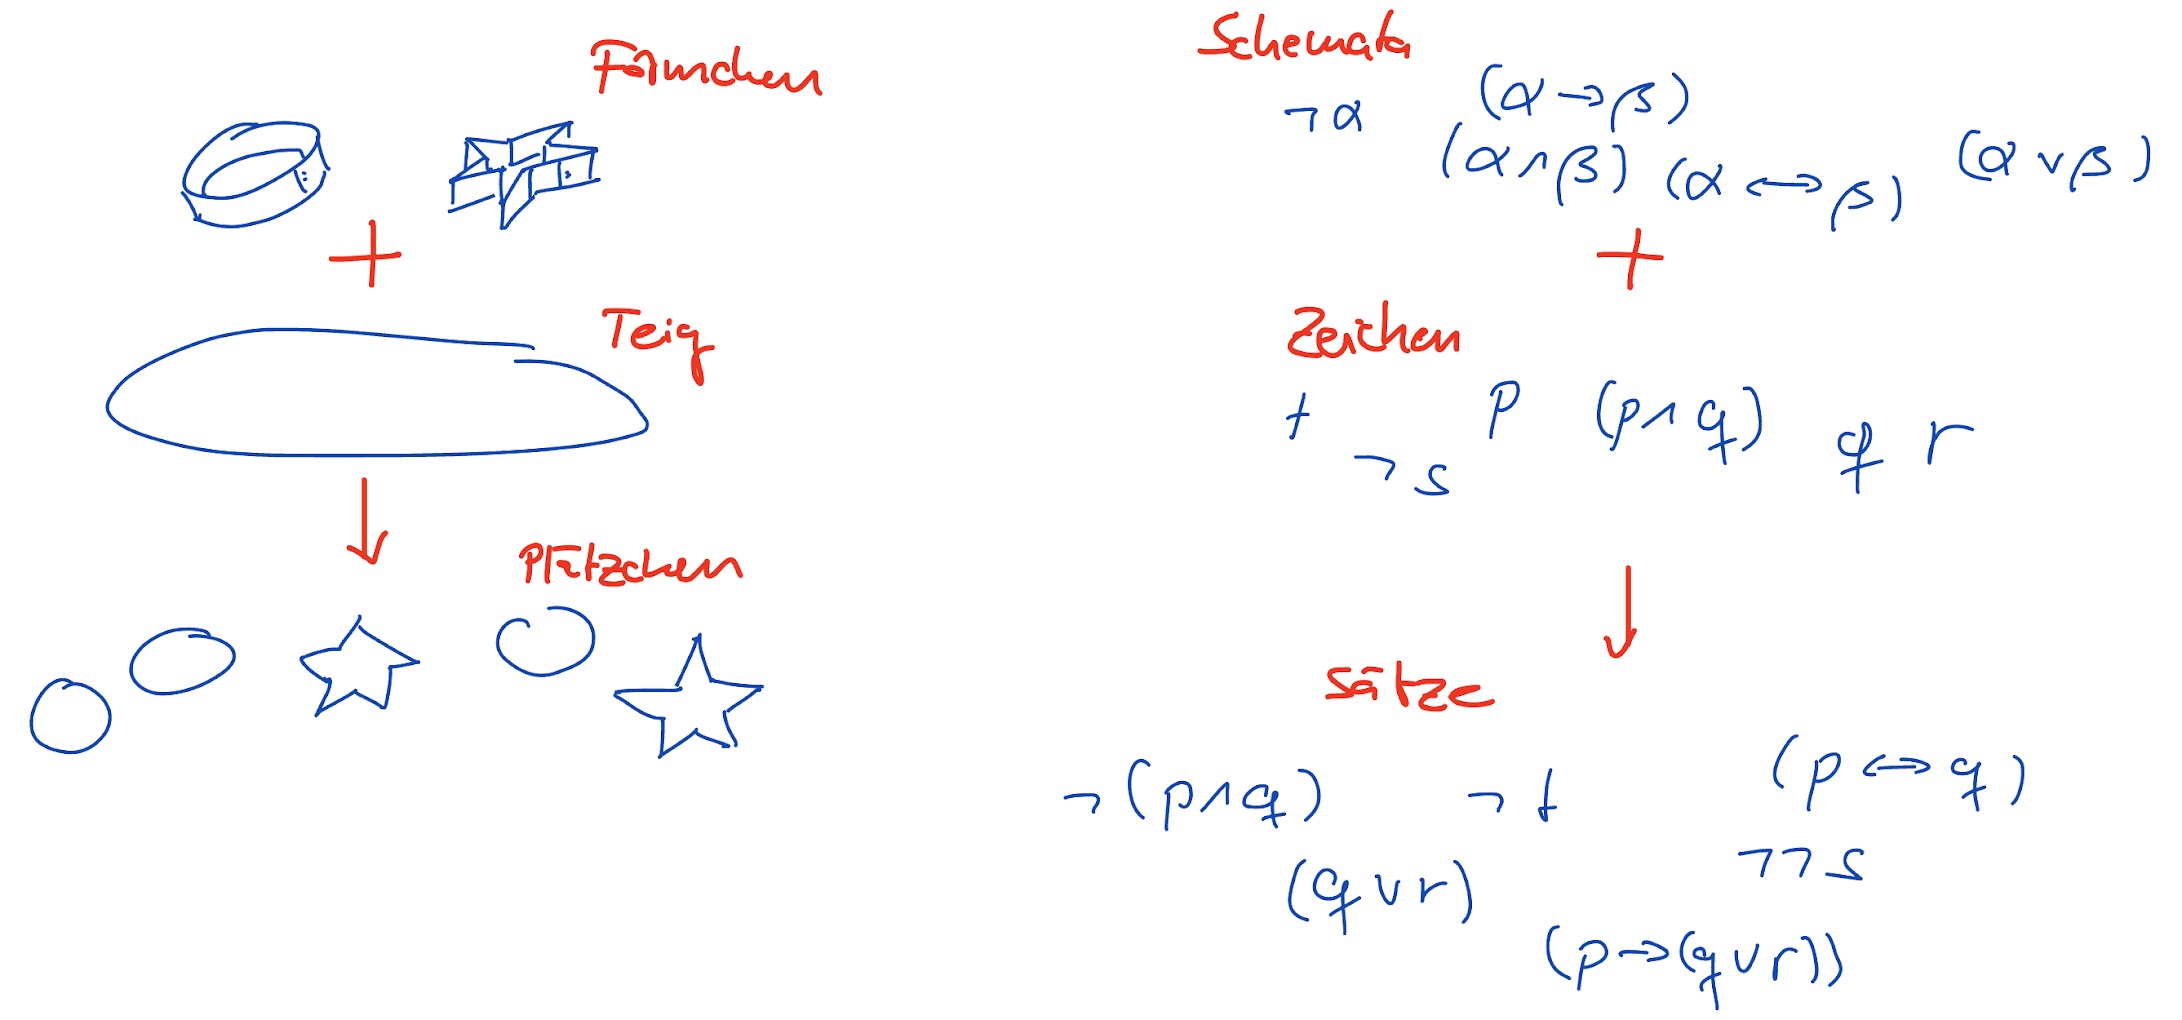 Förmchen
+
Teig
↓
Plätzchen
Schemata
¬α (α→β)
(α∧β) (α↔β) (α∨β)
+
Zeichen
t ¬s p (p∧q) q r
↓
Sätze
¬(p∧q) ¬t (p↔q)
(q∨r) ¬¬s
(p→(q∨r))